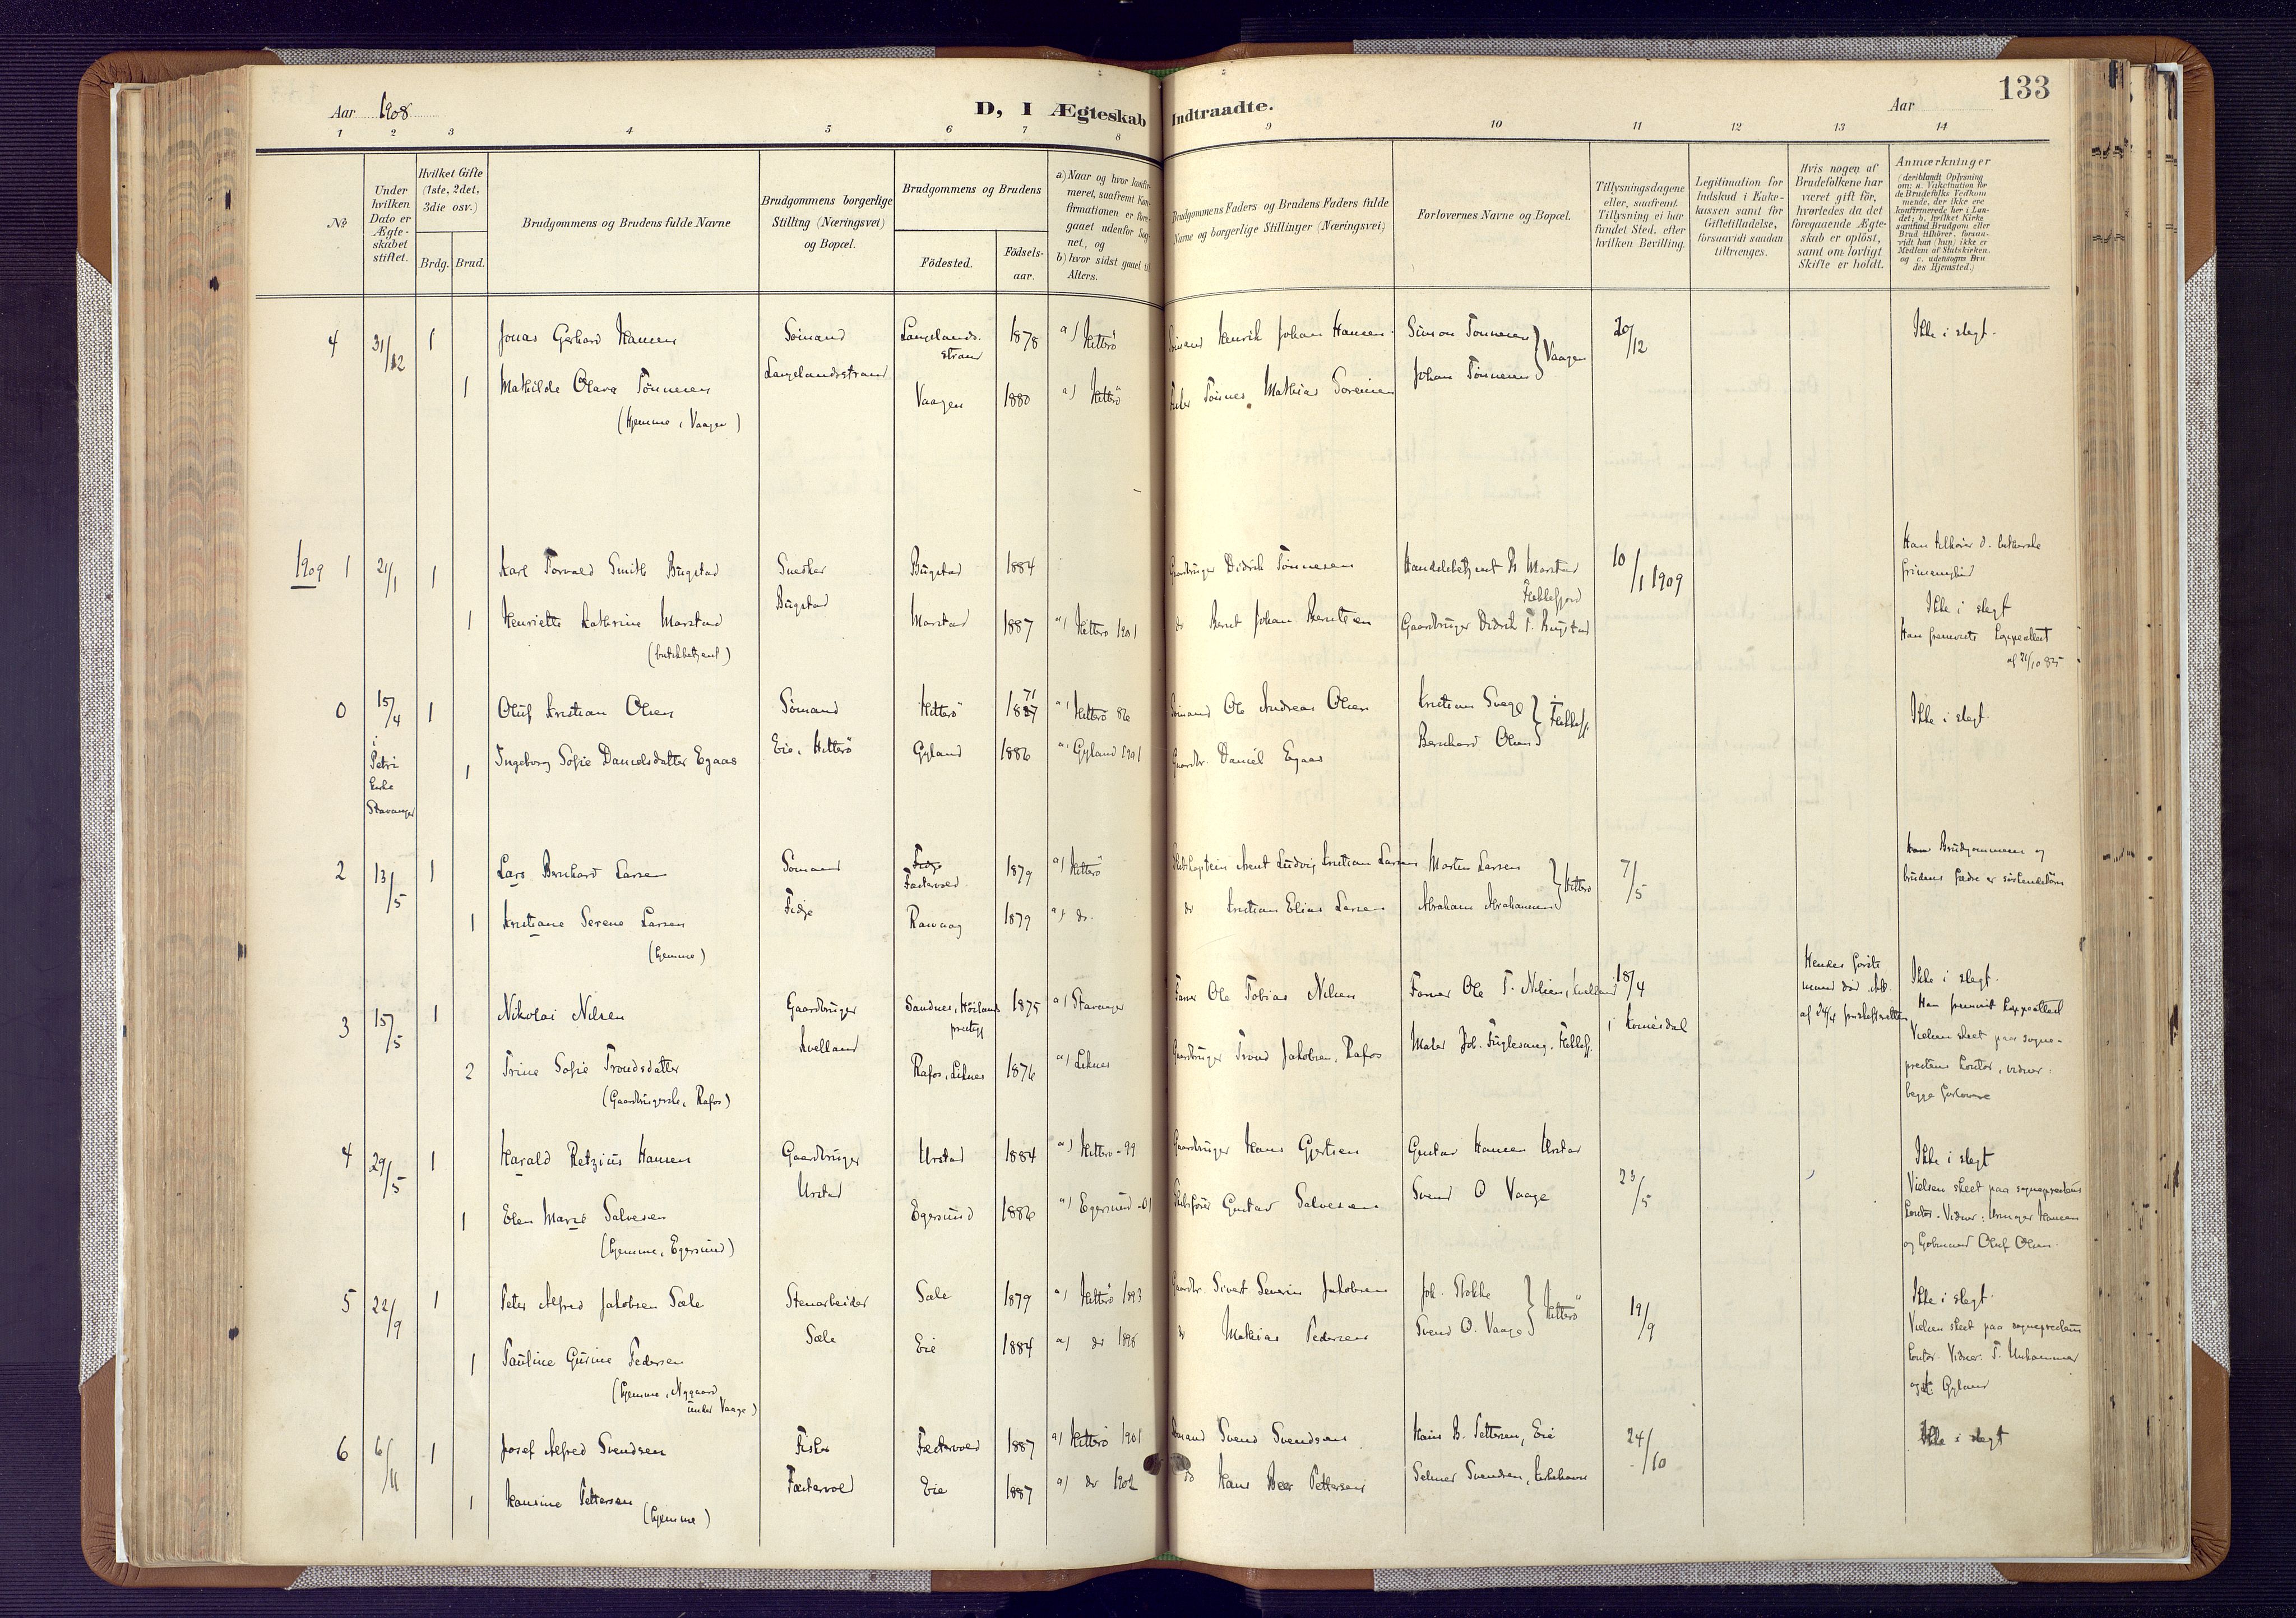 133
Aar 1908
D, I Ægteskab Indtraadte.
Aar
1 2 3 4 5 6 7 8 9 10 11 12 13 14
No
Under hvilken Dato er Ægteskabet stiftet.
Hvilket Gifte (1ste, 2det, 3die osv.)
Brdg. Brud.
Brudgommens og Brudens fulde Navne
Brudgommens borgerlige Stilling (Næringsvei) og Bopæl.
Brudgommens og Brudens
Födested.
Födsels-aar.
a) Naar og hvor konfirmeret, saafremt Konfirmationen er foregaaet udenfor Sognet, og
b) hvor sidst gaaet til Alters.
Brudgommens Faders og Brudens Faders fulde Navne og borgerlige Stillinger (Næringsvei)
Forlovernes Navne og Bopæl.
Tillysningsdagene eller, saafremt Tillysning ei har fundet Sted, efter hvilken Bevilling.
Legitimation for Indskud i Enkekassen samt for Giftetilladelse, forsaavidt saadan tiltrænges.
Hvis nogen af Brudefolkene har været gift för, hvorledes da det foregaaende Ægteskab er oplöst, samt om lovligt Skifte er holdt.
Anmærkninger
(deriblandt Oplysning om: a. Vaksination for de Brudefolks Vedkommende, der ikke ere konfirmerede her i Landet; b. hvilket Kirkesamfund Brudgom eller Brud tilhörer, forsaavidt han (hun) ikke er Medlem af Statskirken, og c. udensogns Brudes Hjemsted.)
4 31/12 1 Jonas Gerhard Hansen Sömand Langelandsstrand 1878 a) Hitterö Sömand Henrik Johan Hansen Simon Tönnesen 20/12 Ikke i slegt.
Langelandsstrand
1 Mathilde Olava Tönnesen Vaagen 1880 a) Hitterö Tönnes Mathias Sörensen Johan Tönnesen } Vaagen
(Hjemme, Vaagen)
1909 1 21/1 1 Karl Torvald Smith Bugstad Snedker Bugstad 1884 Gaardbruger Didrik Tönnesen Handelsbetjent B. Marstad Flekkefjord 10/1 1909 Han tilhörer d. lutherske frimenighed
Bugstad
1 Henriette Kathrine Marstad Marstad 1887 a) Hitterö 1901 do Bernt Johan Berntsen Gaardbruger Didrik T. Bugstad Ikke i slegt
(butikbetjent) Han fremviste koppeattest af 21/10 85
0 15/4 1 Oluf Kristian Olsen Sömand Hitterö 1871 a) Hitterö 86 Sömand Ole Andreas Olsen Kristian Svege Ikke i slegt.
i Petri Kirke Stavanger
1 Ingeborg Sofie Danielsdatter Egaas Eie, Hitterö Gyland 1886 a) Gyland 1901 Gaardbr. Daniel Egaas Bernhard Olsen } Flekkefj.
2 13/5 1 Lars Bernhard Larsen Sömand Fedje Fædevold 1879 a) Hitterö Arent Ludvig Kristian Larsen Morten Larsen 7/5 Brudgommens og brudens fædre er söskendebörn
Fedje
1 Kristiane Serene Larsen Rasvaag 1879 a) do. do Kristian Elias Larsen Abraham Abrahamsen } Hitterö
(hjemme)
3 15/5 1 Nikolai Nilsen Gaardbruger Sandnes, Höiland prestegj. 1875 a) Stavanger Ole Tobias Nilsen Ole T. Nilsen, Kvelland 18/4 i Kvinesdal Hendes förste mand död Ikke i slegt.
Kvelland
2 Trine Sofie Trondsdatter Rafos, Liknes 1876 a) Liknes Gaardbruger Trond Jakobsen, Rafos Maler Joh. Fuglesang, Flekkefj. Han fremviste koppeattest
(Gaardbrugerske, Rafos) Vielsen skeet paa sogneprestens kontor, vidner: begge forlovere
4 29/5 1 Harald Retzius Hansen Gaardbruger Urstad 1884 a) Hitterö -99 Gaardbruger Hans Gjertsen Gustav Hansen Urstad 23/5 Ikke i slegt
Urstad
1 Elen Marie Salvesen Egersund 1886 a) Egersund -01 Gustav Salvesen Svend O Vaage Vielsen skeet paa sogneprestens
(hjemme, Egersund) kontor. Vidner: Hansen og Oluf Olsen.
5 22/9 1 Peter Alfred Jakobsen Sæle Stenarbeider Sæle 1879 a) Hitterö 1893 Gaardbr. Sivert Severin Jakobsen Joh. Stokke 19/9 Ikke i slegt.
Sæle
1 Pauline Gurine Pedersen Eie 1884 a) do 1898 do Mathias Pedersen Svend O. Vaage } Hitterö Vielsen skeet paa sogneprestens
(hjemme, Nygaard under Vaage) kontor. Vidner: T. Unhammer og Gyland
6 6/11 1 Josef Alfred Svendsen Fisker Fædevold 1887 a) Hitterö 1901 Sömand Svend Svendsen Hans B. Pettersen, Eie 24/10 Ikke i slegt
Fædevold
1 Hansine Pettersen Eie 1887 a) do 1902 do Hans Beer Pettersen Selmer Svendsen, Kirkehavn
(hjemme)